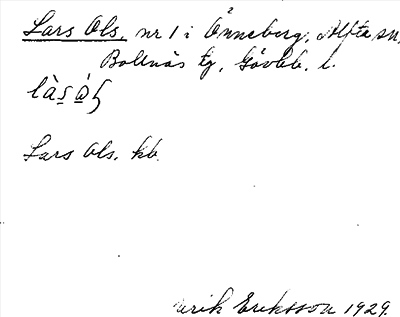 Lars Ols, nr 1 i Ånneberg, Alfta sn,
Bollnäs tg, Gävleb. l.
Lars Ols, kb.
Erik Eriksson 1929.